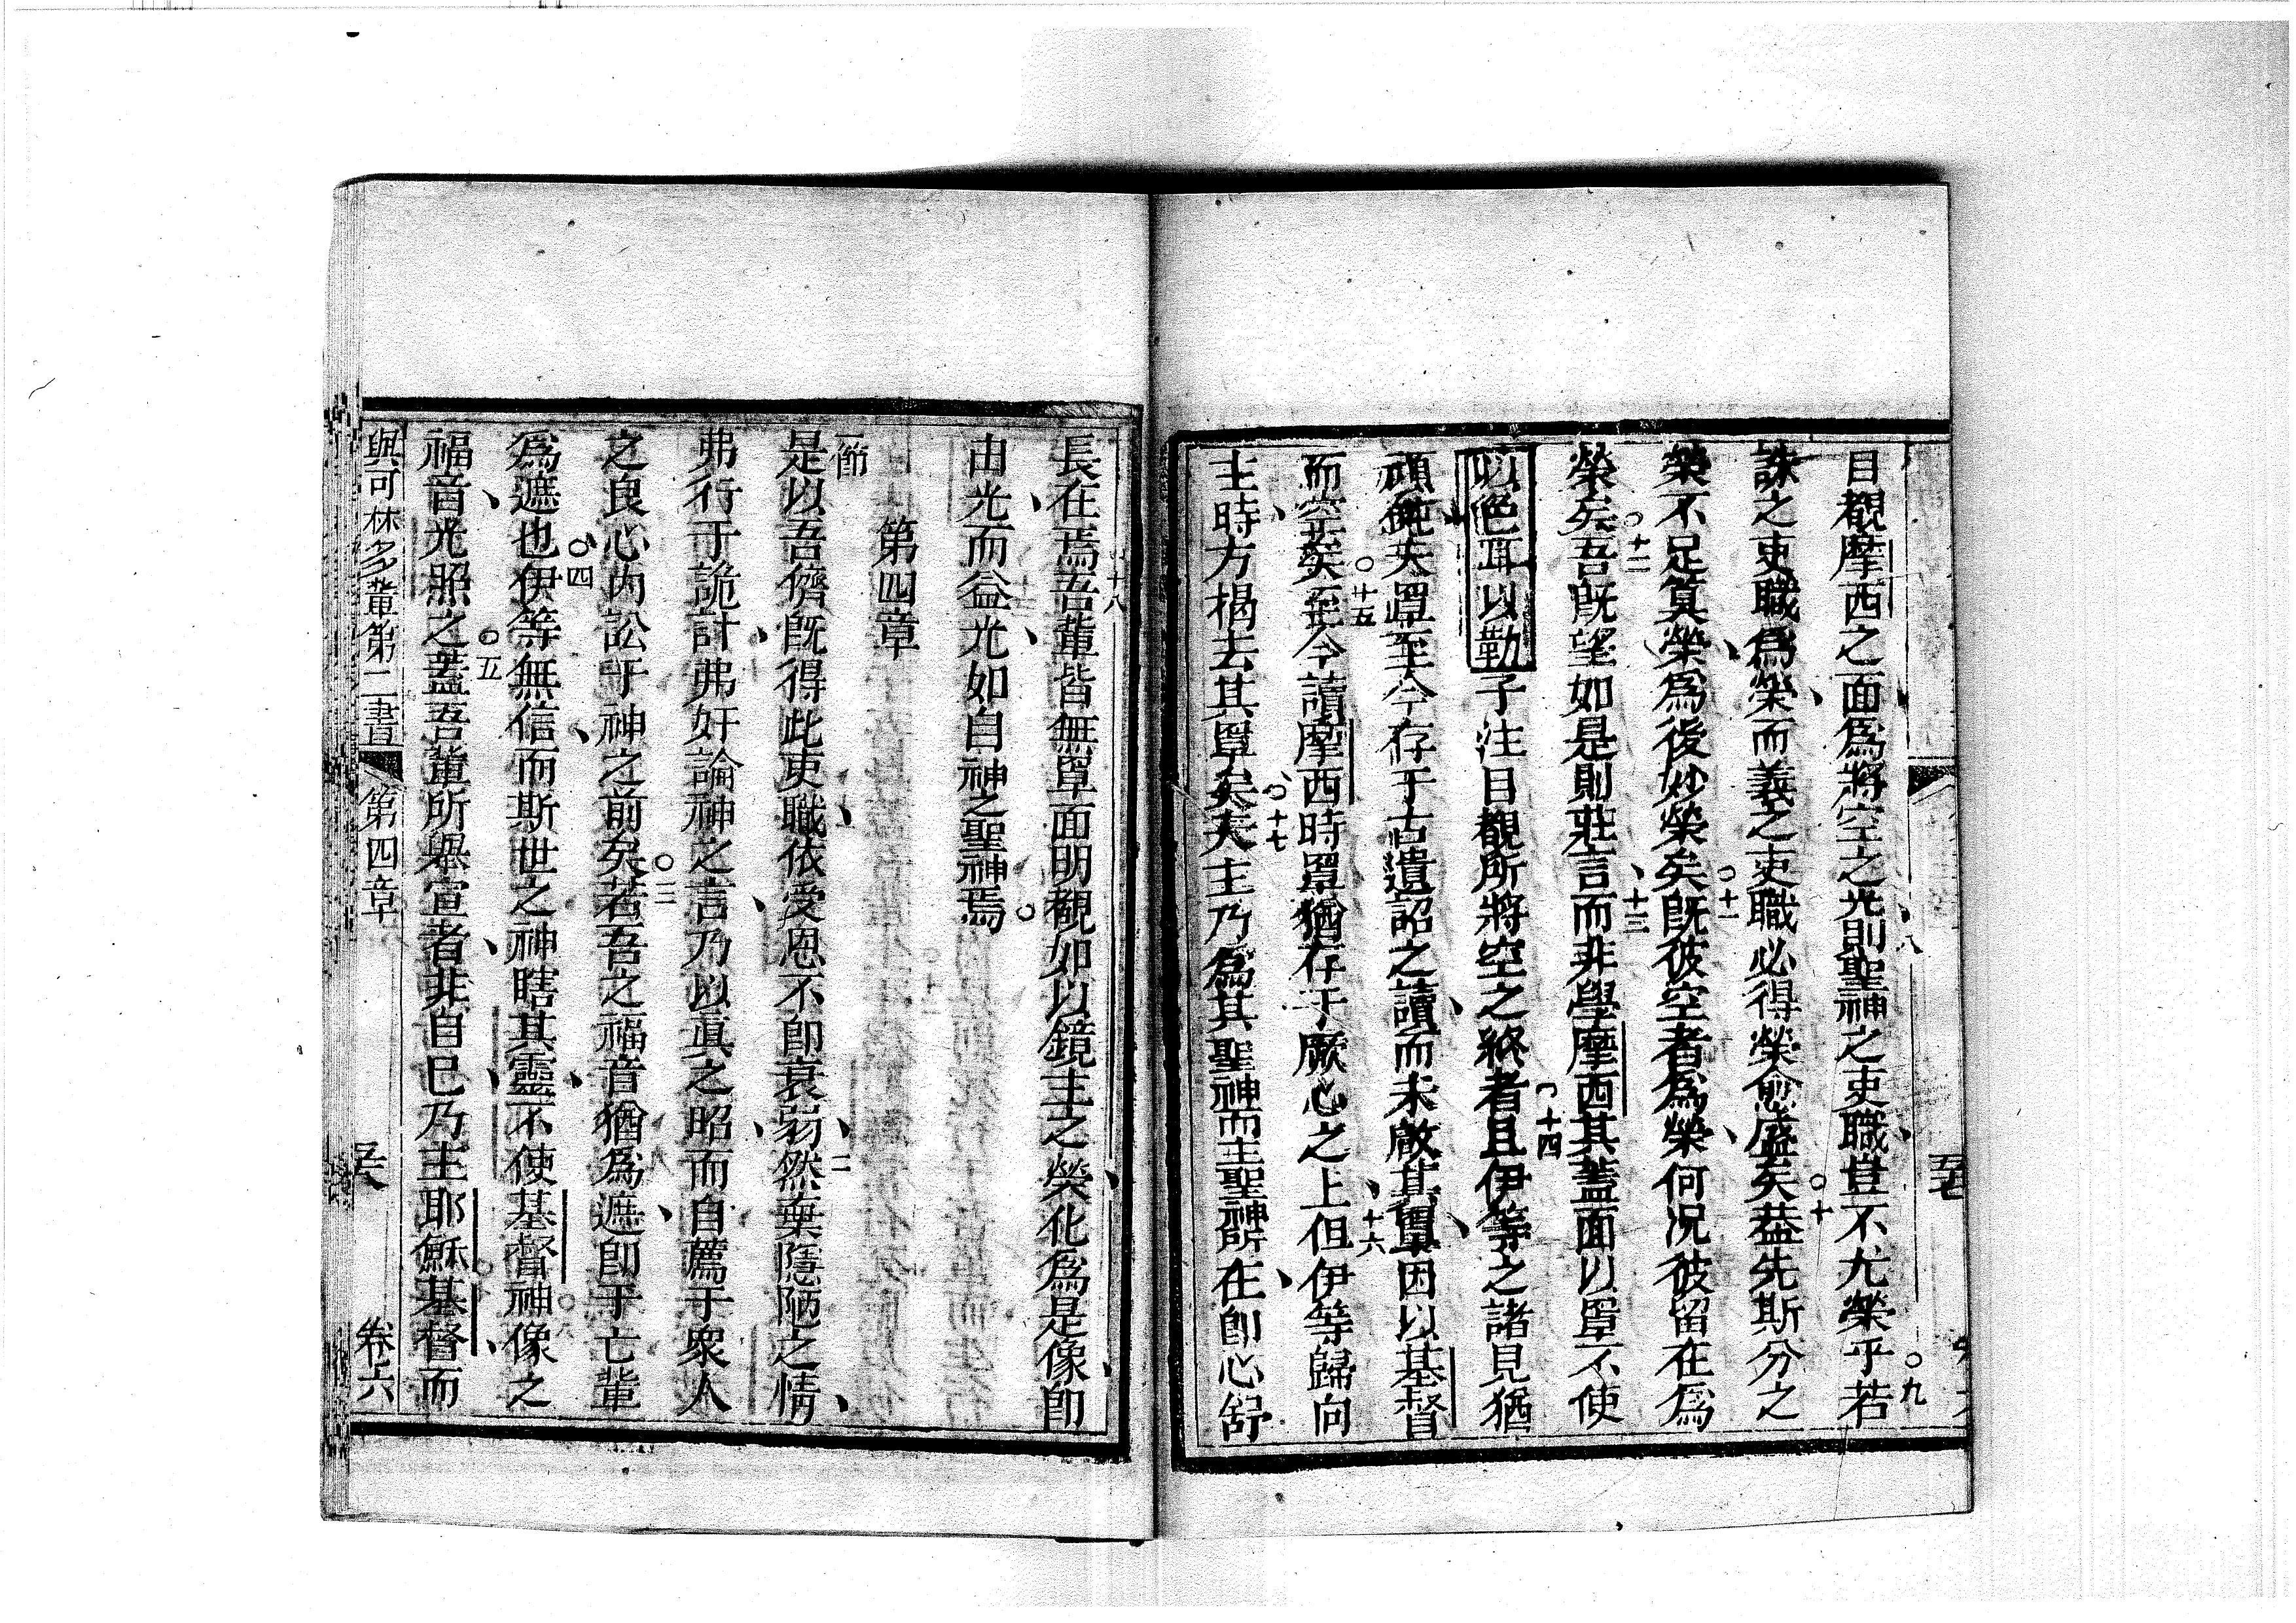 目覩摩西之面爲將空之光則聖神之吏職豈不尤榮乎若
誅之吏職爲榮而義之吏職必得榮愈盛矣葢先斯分之
榮不足算榮爲後妙榮矣旣彼空者爲榮何况彼留在爲
榮矣吾旣望如是則莊言而非學摩西其蓋面以罩不使
以色耳以勒子注目覩所將空之終者且伊等之諸見猶
頑鈍夫罩至今存于古遺詔之讀而未啟其罩因以基督
而空矣至今讀摩西時罩猶存于厥心之上但伊等歸向
主時方揭去其罩矣夫主乃爲其聖神而主聖神所在卽心舒
八
九
十
十一
十二
十三
十四
十五
十六
十七
長在焉吾輩皆無罩面明覩如以鏡主之榮化爲是像卽
由光而益光如自神之聖神焉
十八
第四章
一節
是以吾儕旣得此吏職依受恩不卽衰弱然棄隱陋之情
弗行于詭計弗奸論神之言乃以眞之昭而自薦于衆人
之良心內訟于神之前矣若吾之福音猶爲遮卽于亡輩
爲遮也伊等無信而斯世之神瞎其靈不使基督神像之
福音光照之蓋吾輩所舉宣者非自己乃主耶穌基督而
二
三
四
五
與可林多輩第二書 第四章 卷六